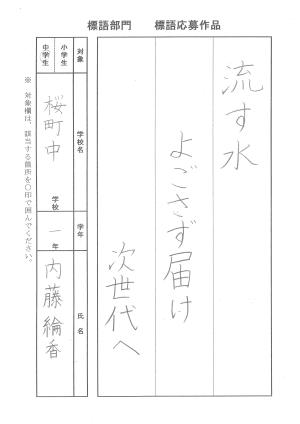 標語部門　標語応募作品
流す水
よごさず届け
次世代へ
対象
小学生
中学生
学校名
桜町中 学校
学年
一年
氏名
内藤綸香
※ 対象欄は、該当する箇所を〇印で囲んでください。